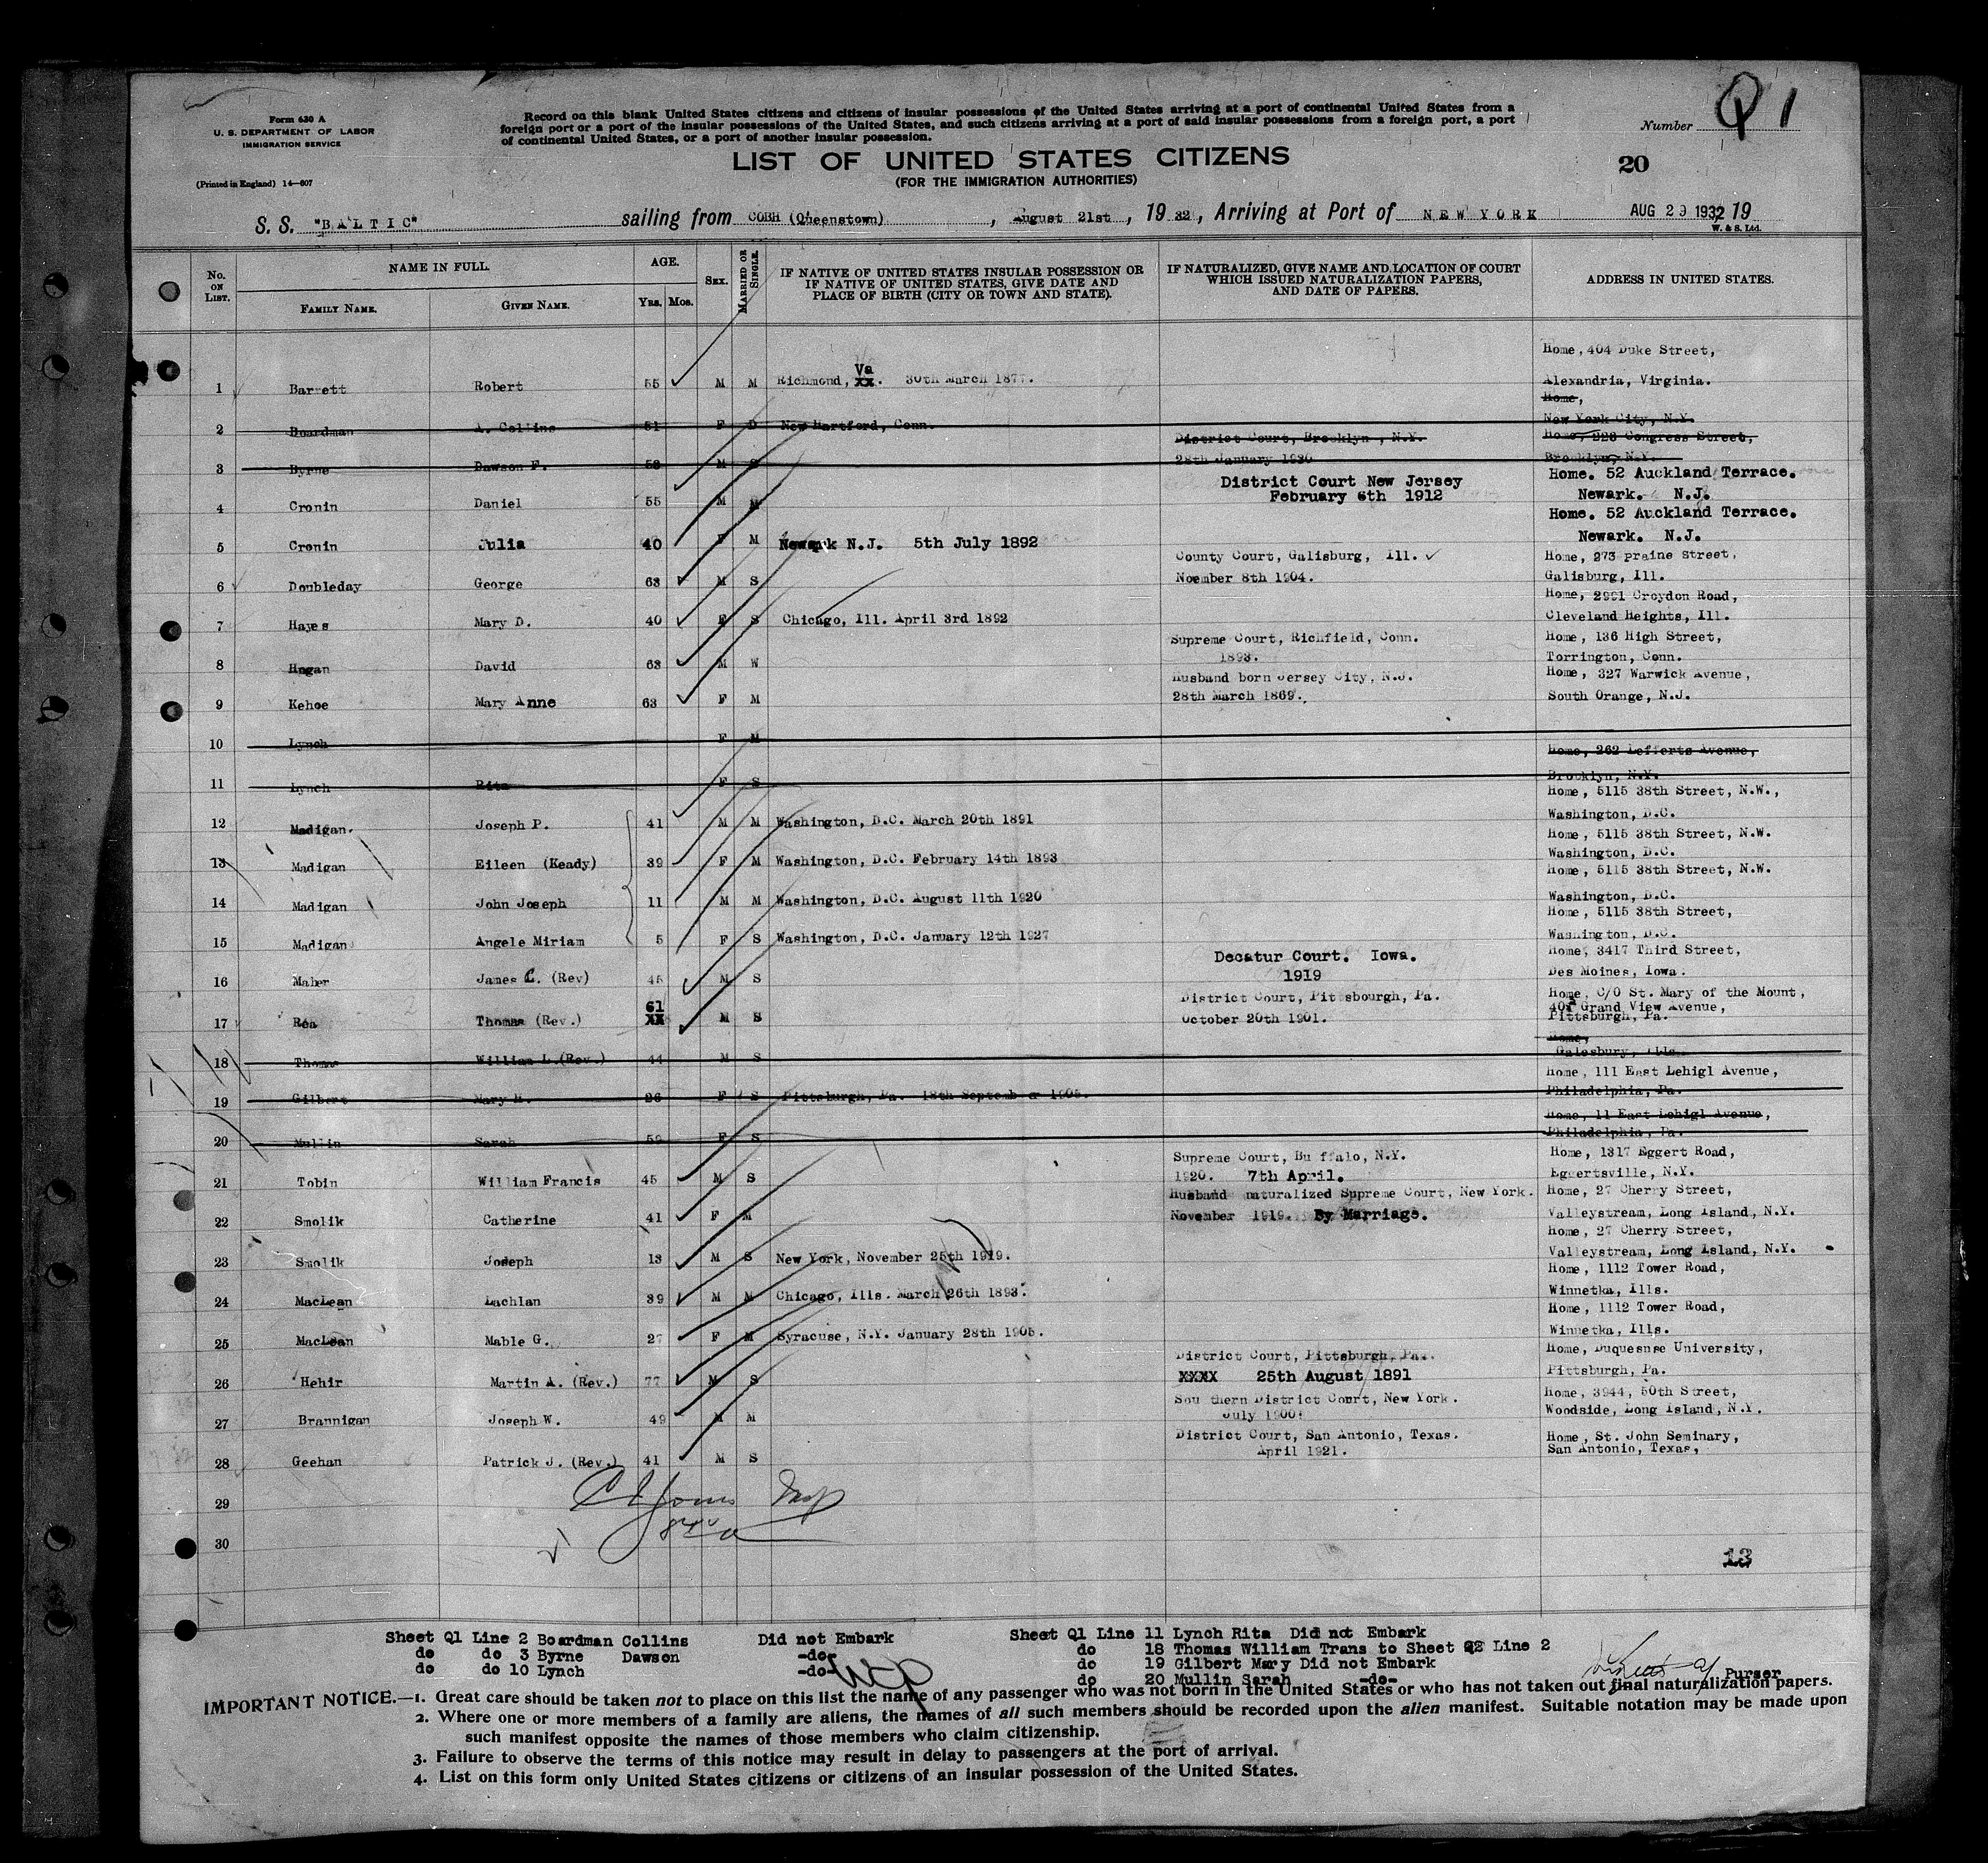 Form 630 A
U. S. DEPARTMENT OF LABOR
IMMIGRATION SERVICE
(Printed in England) 14—607
Record on this blank United States citizens and citizens of insular possessions of the United States arriving at a port of continental United States from a
foreign port or a port of the insular possessions of the United States, and such citizens arriving at a port of said insular possessions from a foreign port, a port
of continental United States, or a port of another insular possession.
Number Q 1
LIST OF UNITED STATES CITIZENS
(FOR THE IMMIGRATION AUTHORITIES)
20
S. S. "BALTIC" sailing from COBH (Queenstown), August 21st, 19 32, Arriving at Port of NEW YORK AUG 29 1932 19
W. & S. Ltd.
No. ON LIST. NAME IN FULL. AGE. SEX. MARRIED OR SINGLE. IF NATIVE OF UNITED STATES INSULAR POSSESSION OR IF NATIVE OF UNITED STATES, GIVE DATE AND PLACE OF BIRTH (CITY OR TOWN AND STATE). IF NATURALIZED, GIVE NAME AND LOCATION OF COURT WHICH ISSUED NATURALIZATION PAPERS, AND DATE OF PAPERS. ADDRESS IN UNITED STATES.
FAMILY NAME. GIVEN NAME. YRS. MOS.
1 Barrett Robert 55 M M Richmond, Va xx. 30th March 1877. Home, 404 Duke Street, Alexandria, Virginia.
2 Boardman A. Collins 51 F D New Hartford, Conn. Home, New York City, N.Y.
3 Byrne Dawson F. 58 M S District Court, Brooklyn, N.Y. 28th January 1930 Home, 226 Congress Street, Brooklyn, N.Y.
4 Cronin Daniel 55 M M District Court New Jersey February 6th 1912 Home. 52 Auckland Terrace. Newark. N.J.
5 Cronin Julia 40 F M Newark N.J. 5th July 1892 Home. 52 Auckland Terrace. Newark. N.J.
6 Doubleday George 63 M S County Court, Galisburg, Ill. Noember 8th 1904. Home, 273 praine Street, Galisburg, Ill.
7 Hayes Mary D. 40 F S Chicago, Ill. April 3rd 1892 Home, 2991 Croydon Road, Cleveland Heights, Ill.
8 Hogan David 63 M W Supreme Court, Richfield, Conn. 1893. Home, 136 High Street, Torrington, Conn.
9 Kehoe Mary Anne 63 F M Husband born Jersey City, N.J. 28th March 1869. Home, 327 Warwick Avenue, South Orange, N.J.
10 Lynch F M
11 Lynch Rita F S Home, 262 Lefferts Avenue, Brooklyn, N.Y.
12 Madigan. Joseph P. 41 M M Washington, D.C. March 20th 1891 Home, 5115 38th Street, N.W., Washington, D.C.
13 Madigan Eileen (Keady) 39 F M Washington, D.C. February 14th 1893 Home, 5115 38th Street, N.W. Washington, D.C.
14 Madigan John Joseph 11 M M Washington, D.C. August 11th 1920 Home, 5115 38th Street, N.W. Washington, D.C.
15 Madigan Angele Miriam 5 F S Washington, D.C. January 12th 1927 Home, 5115 38th Street, Washington, D.C.
16 Maher James C. (Rev) 45 M S Decatur Court. Iowa. 1919 Home, 3417 Third Street, Des Moines, Iowa.
17 Rea Thomas (Rev.) 61 xx M S District Court, Pittsbourgh, Pa. October 20th 1901. Home, C/O St. Mary of the Mount, 403 Grand View Avenue, Pittsburgh, Pa.
18 Thomas William L. (Rev.) 44 M S Home, Galesbury, Ills.
19 Gilbert Mary H. 26 F S Pittsburgh, Pa. 18th September 1905. Home, 111 East Lehigl Avenue, Philadelphia, Pa.
20 Mullin Sarah 59 F S Home, 11 East Lehigl Avenue, Philadelphia, Pa.
21 Tobin William Francis 45 M S Supreme Court, Buffalo, N.Y. 1920. 7th April. Home, 1317 Eggert Road, Eggertsville, N.Y.
22 Smolik Catherine 41 F M Husband naturalized Supreme Court, New York. November 1919. By Marriage. Home, 27 Cherry Street, Valleystream, Long Island, N.Y.
23 Smolik Joseph 13 M S New York, November 25th 1919. Home, 27 Cherry Street, Valleystream, Long Island, N.Y.
24 MacLean Lachlan 39 M M Chicago, Ills. March 26th 1893. Home, 1112 Tower Road, Winnetka, Ills.
25 MacLean Mable G. 27 F M Syracuse, N.Y. January 28th 1905. Home, 1112 Tower Road, Winnetka, Ills.
26 Hehir Martin A. (Rev.) 77 M S District Court, Pittsburgh, Pa. XXXX 25th August 1891 Home, Duquesnse University, Pittsburgh, Pa.
27 Brannigan Joseph W. 49 M M Southern District Court, New York. July 1900. Home, 3944, 50th Street, Woodside, Long Island, N.Y.
28 Geehan Patrick J. (Rev.) 41 M S District Court, San Antonio, Texas. April 1921. Home, St. John Seminary, San Antonio, Texas,
29
30
13
Sheet Q1 Line 2 Boardman Collins Did not Embark
do do 3 Byrne Dawson -do-
do do 10 Lynch -do-
Sheet Q1 Line 11 Lynch Rita Did not Embark
do 18 Thomas William Trans to Sheet Q2 Line 2
do 19 Gilbert Mary Did not Embark
do 20 Mullin Sarah -do-
Purser
IMPORTANT NOTICE.—1. Great care should be taken not to place on this list the name of any passenger who was not born in the United States or who has not taken out final naturalization papers.
2. Where one or more members of a family are aliens, the names of all such members should be recorded upon the alien manifest. Suitable notation may be made upon
such manifest opposite the names of those members who claim citizenship.
3. Failure to observe the terms of this notice may result in delay to passengers at the port of arrival.
4. List on this form only United States citizens or citizens of an insular possession of the United States.